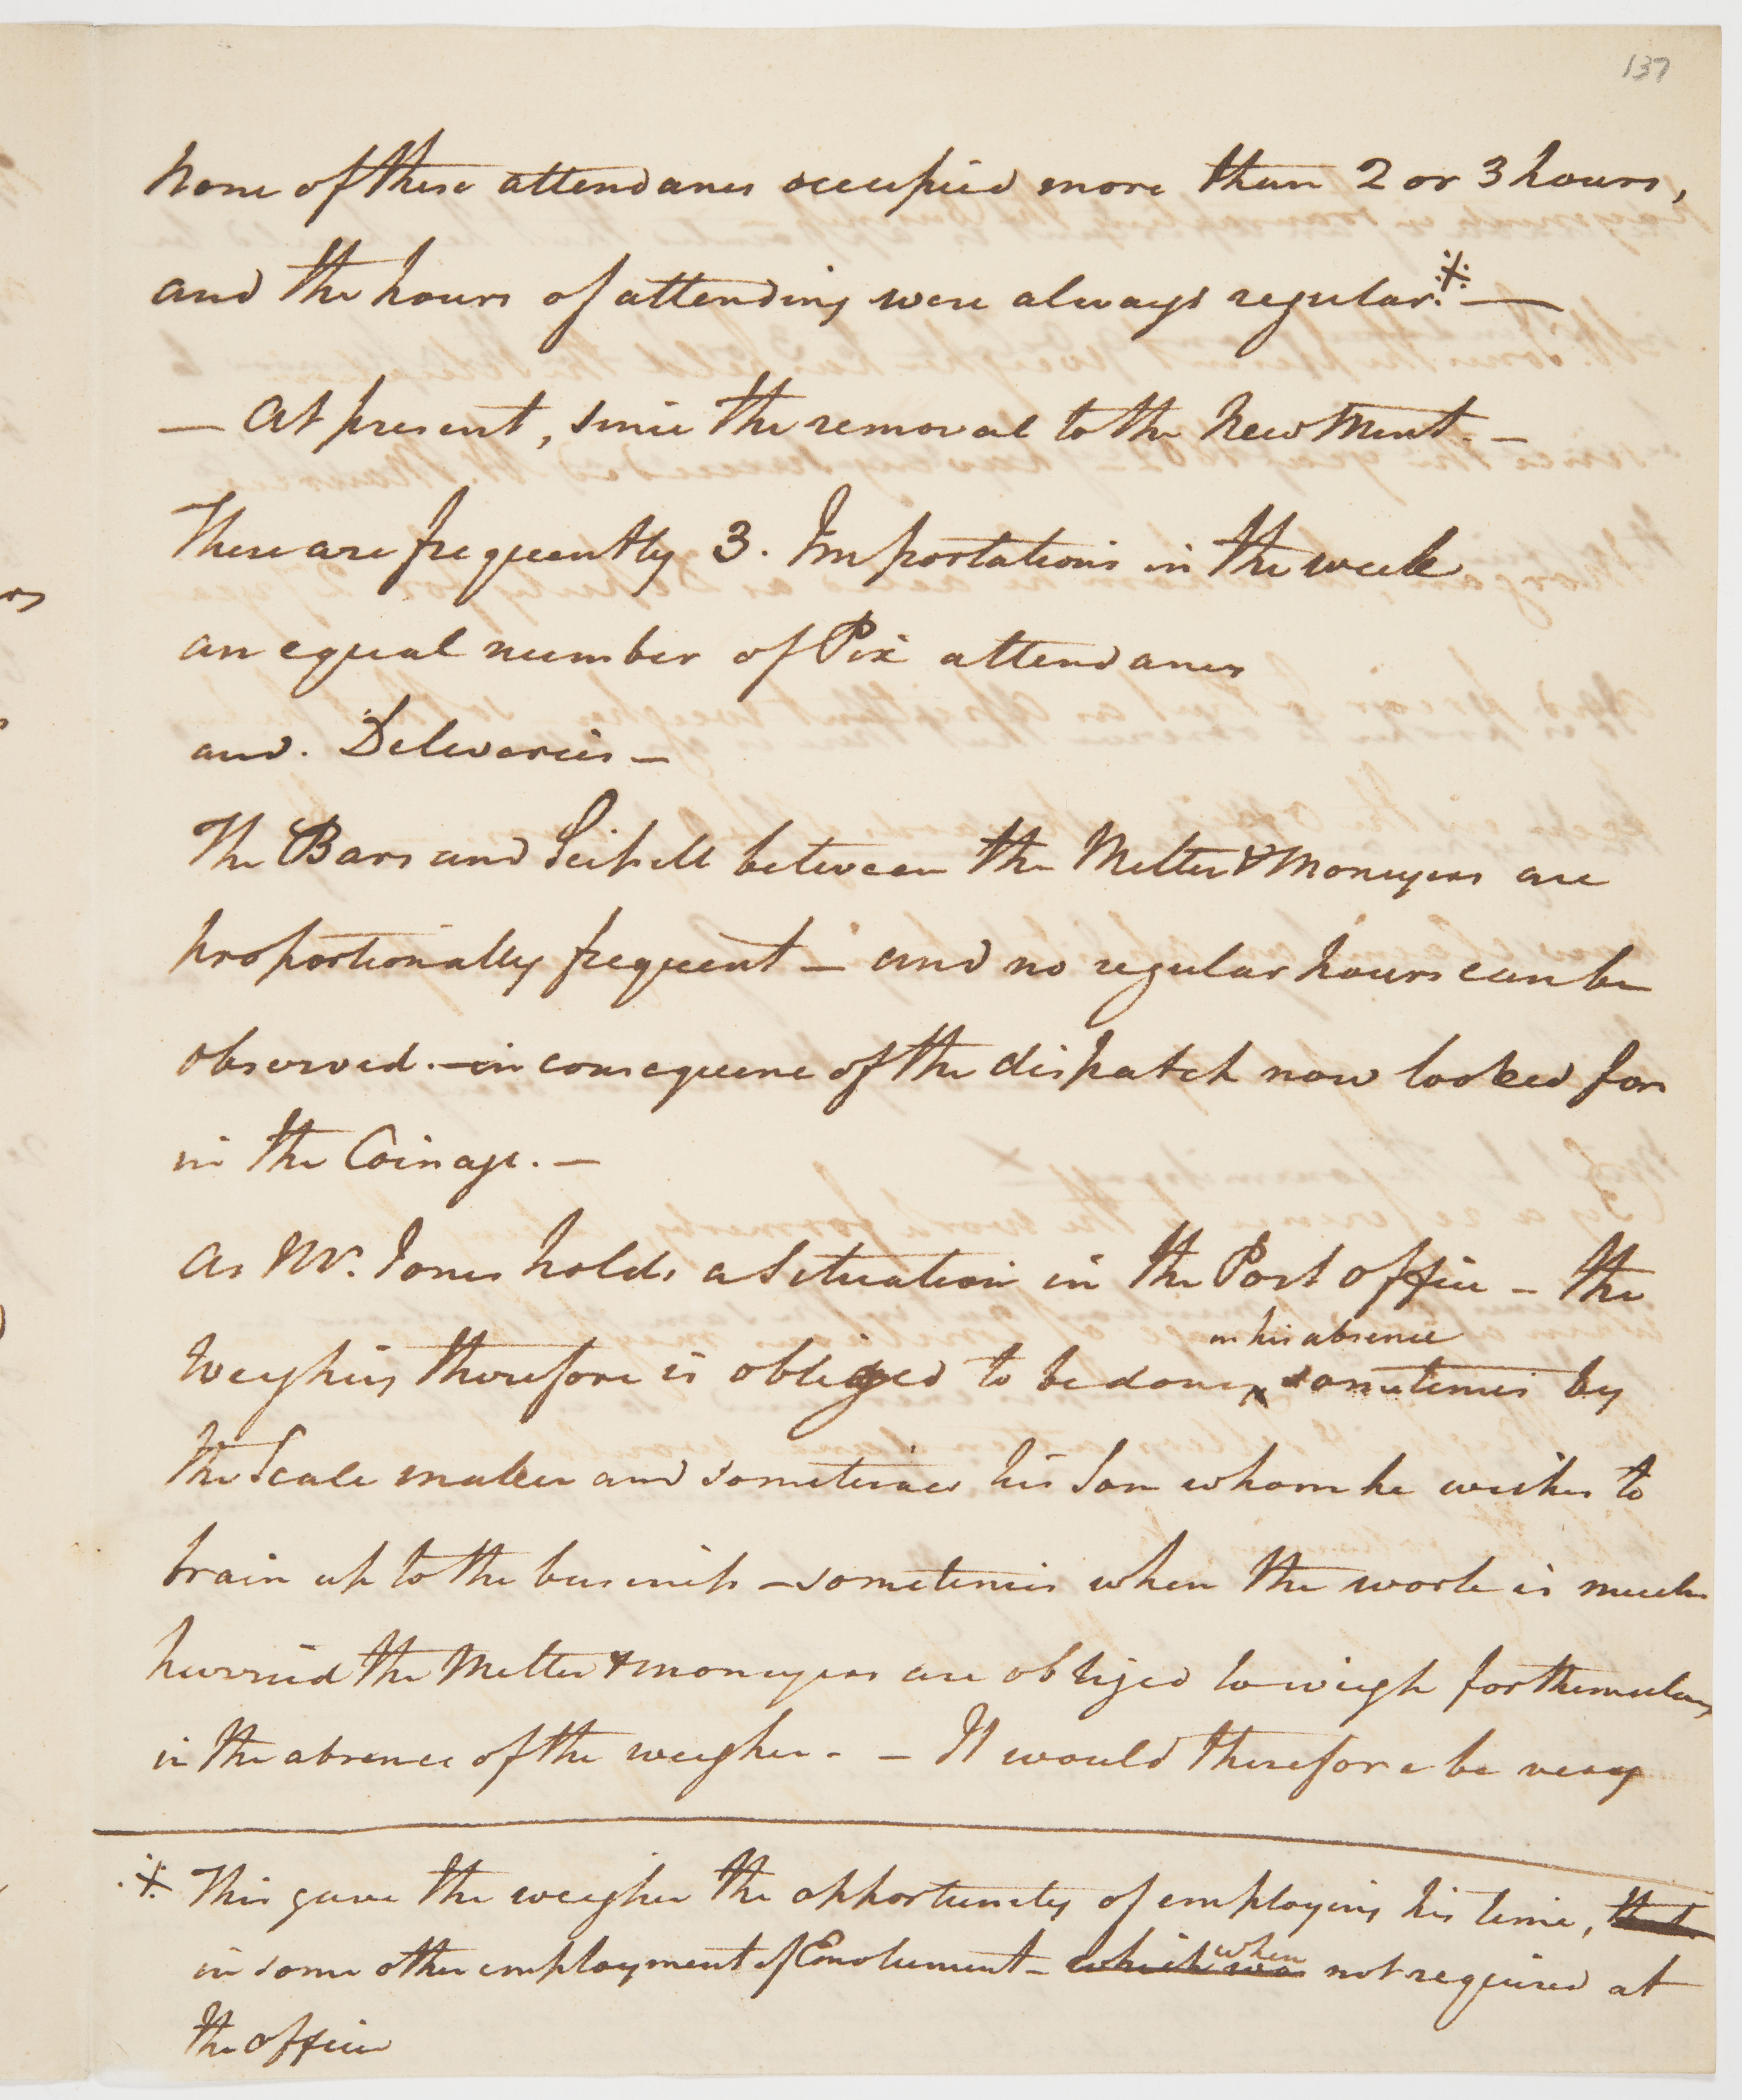 137
None of these attendances occupied more than 2 or 3 hours,
and the hours of attending were always regular.※ —
— At present, since the removal to the New Mint. —
There are frequently 3. Importations in the week
an equal number of Pix attendances
and. Deliveries —
The Bars and Scissell between the Melter & Moneyers are
proportionally frequent — and no regular hours can be
observed. — in consequence of the dispatch now looked for
in the Coinage. —
As Mr. Jones holds a Situation in the Post Office — the
in his absence
Weighing therefore is obliged to be done, ^ sometimes by
the Scale maker and sometimes his Son whom he wishes to
train up to the business — sometimes when the work is much
hurried the Melter & moneyers are obliged to weigh for themselves,
in the absence of the weigher. — It would therefore be very
※ This gave the weigher the opportunity of employing his time, that
when
in some other employment of Emolument — which was not required at
the office